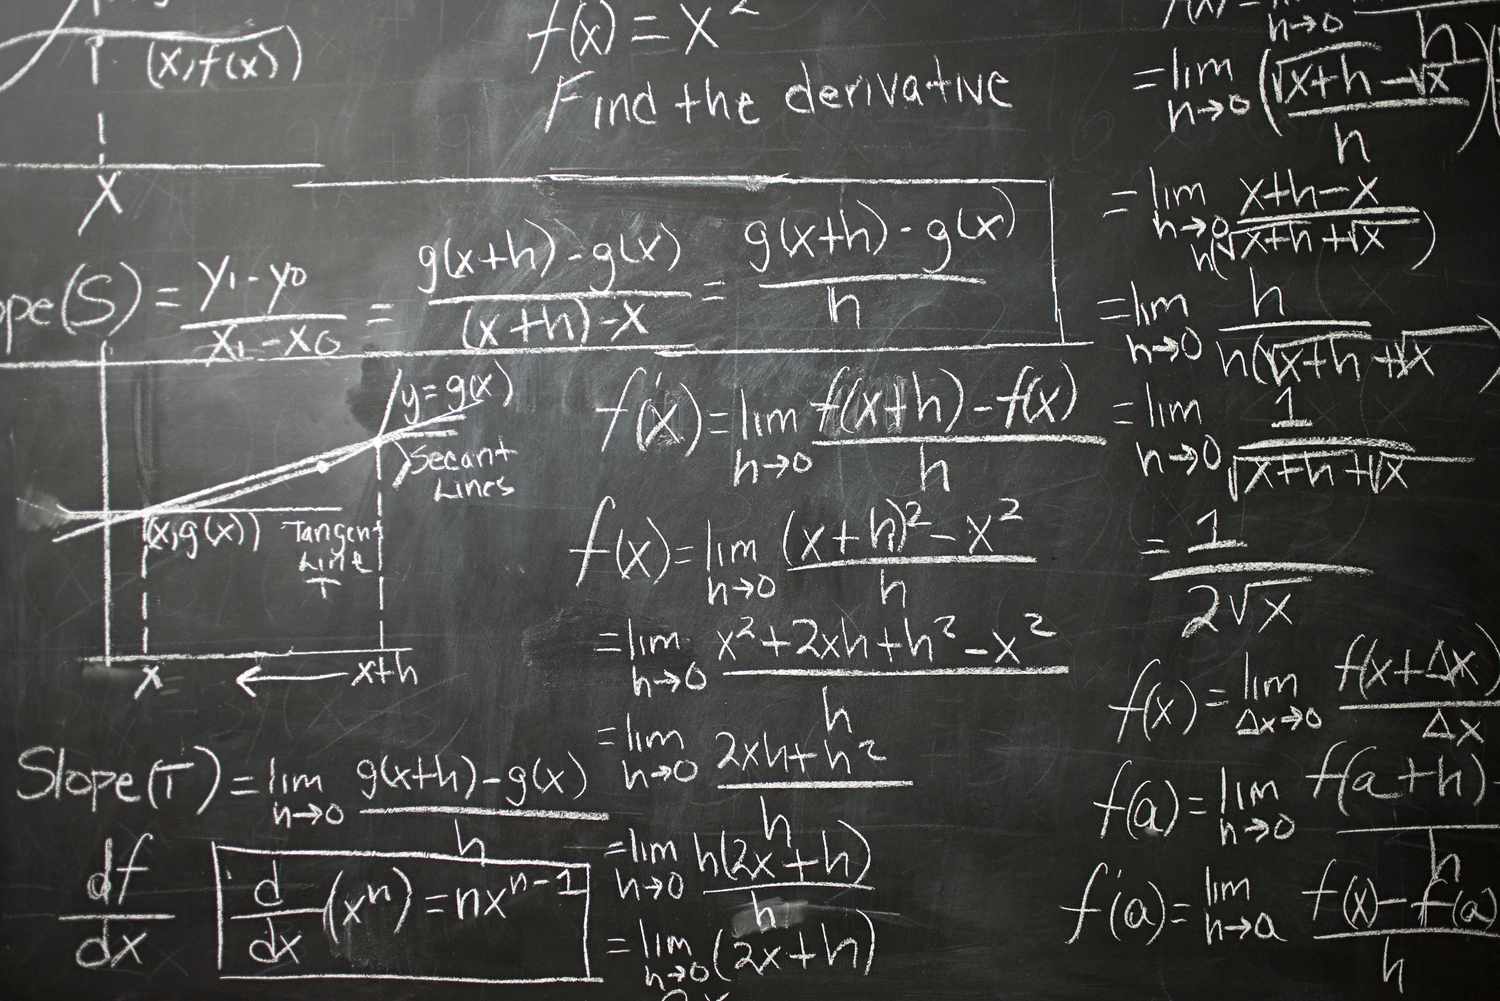 (x, f(x))
x
f(x) = x²
Find the derivative
ope(S) = (y₁ - y₀)/(x₁ - x₀) = (g(x+h) - g(x))/((x+h) - x) = (g(x+h) - g(x))/h
y = g(x)
Secant
Lines
(x, g(x))
Tangent
Line
T
x ← x+h
Slope(T) = lim h→0 (g(x+h) - g(x))/h
df/dx
d/dx (xⁿ) = nxⁿ⁻¹
f'(x) = lim h→0 (f(x+h) - f(x))/h
f(x) = lim h→0 ((x+h)² - x²)/h
= lim h→0 (x² + 2xh + h² - x²)/h
= lim h→0 (2xh + h²)/h
= lim h→0 h(2x+h)/h
= lim h→0 (2x+h)
h→0 h
= lim h→0 ((√x+h - √x)/h)(
= lim h→0 (x+h-x)/(h(√x+h + √x))
= lim h→0 h/(h(√x+h + √x))
= lim h→0 1/(√x+h + √x)
= 1/(2√x)
f(x) = lim Δx→0 f(x+Δx)/Δx
f(a) = lim h→0 f(a+h)-/h
f'(a) = lim h→a (f(x) - f(a))/h